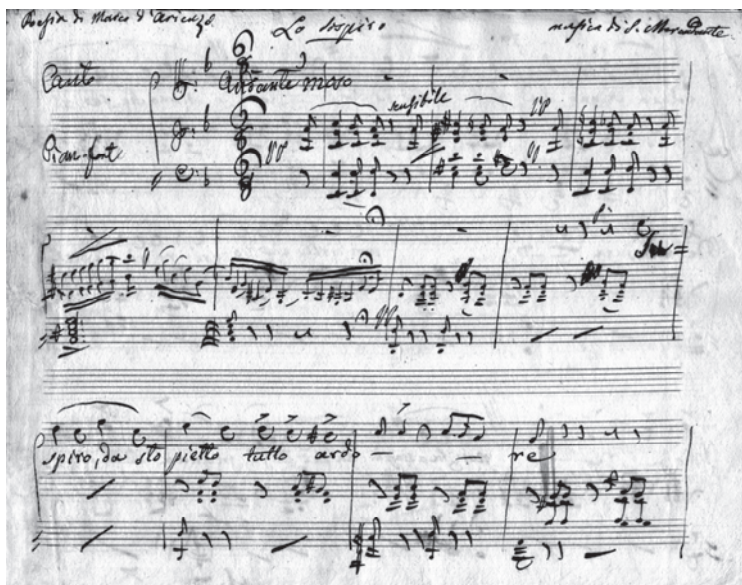 Poesia di Marco d'Arienzo. Lo sospiro musica di S. Mercadante
Canto Andante moso
sensibile
Pian-forte
spiro, da sto pietto tutto ardo - - re